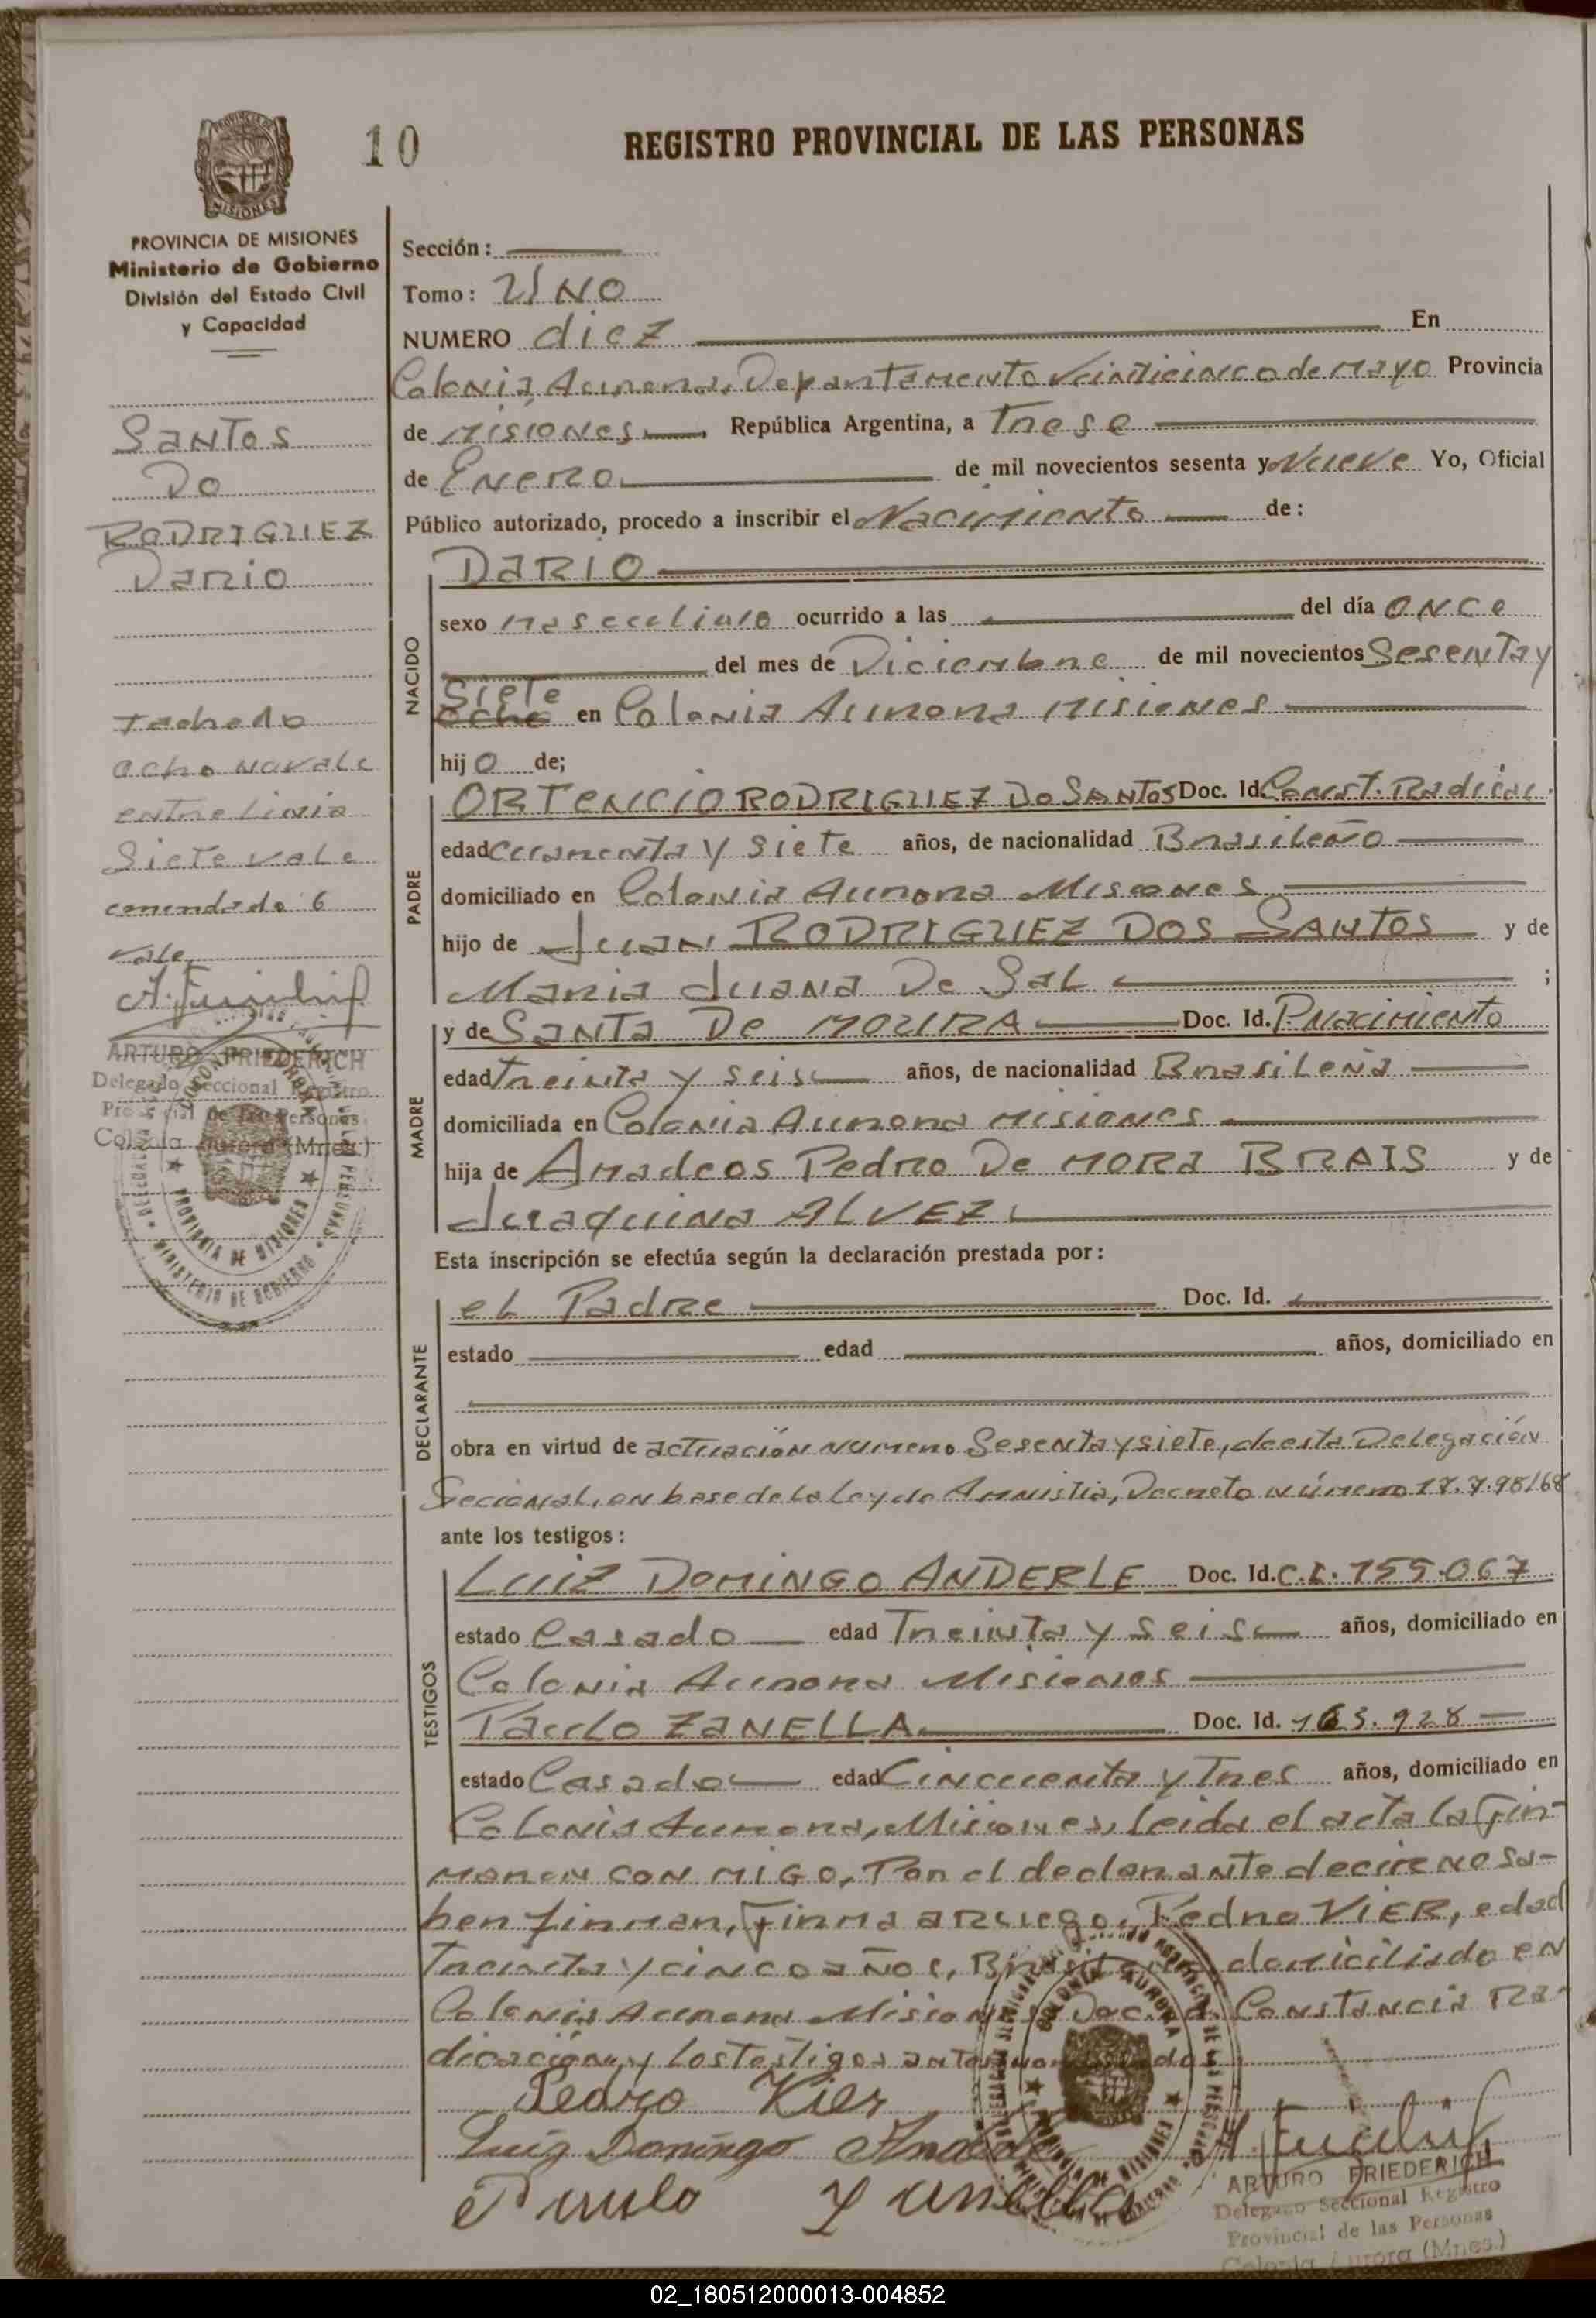 10
REGISTRO PROVINCIAL DE LAS PERSONAS
PROVINCIA DE MISIONES
Ministerio de Gobierno
División del Estado Civil
y Capacidad
SANTOS
DO
RODRIGUEZ
Dario
Tachado
ocho no vale
entre linia
Siete vale
comendado 6
vale
ARTURO FRIEDERICH
Delegado Seccional Registro
Provincial de las Personas
Colonia Aurora (Mnes.)
Sección:
Tomo: UNO
NUMERO diez En
Colonia Aurora, Departamento Veinticinco de Mayo Provincia
de Misiones, República Argentina, a Trese
de Enero de mil novecientos sesenta y Nueve Yo, Oficial
Público autorizado, procedo a inscribir el Nacimiento de:
NACIDO
DARIO
sexo masculino ocurrido a las del día once
del mes de Diciembre de mil novecientos Sesenta y
Siete
ocho en Colonia Aurora Misiones
hijo de;
PADRE
ORTENCIO RODRIGUEZ DO SANTOS Doc. Id. Const. Radicac.
edad cuarenta y siete años, de nacionalidad Brasileño
domiciliado en Colonia Aurora Misiones
hijo de Juan RODRIGUEZ DOS SANTOS y de
Maria Juana De Sal ;
MADRE
y de SANTA De MOURA Doc. Id. P. Nacimiento
edad treinta y seis años, de nacionalidad Brasileña
domiciliada en Colonia Aurora Misiones
hija de Amadeos Pedro De MORA BRAIS y de
Juaquina ALVEZ
Esta inscripción se efectúa según la declaración prestada por:
DECLARANTE
el Padre Doc. Id.
estado edad años, domiciliado en
obra en virtud de actuación numero Sesenta y siete, de esta Delegación
Secional, en base de la Ley de Amnistia, Decreto número 17.7.98/68
ante los testigos:
TESTIGOS
LUIZ DOMINGO ANDERLE Doc. Id. C.I. 155.067
estado Casado edad Treinta y seis años, domiciliado en
Colonia Aurora Misiones
Paulo ZANELLA Doc. Id. 163.928
estado Casado edad Cincuenta y Tres años, domiciliado en
Colonia Aurora, Misiones, leida el acta la Fir-
maron con migo, Por el declarante decir no sa-
ber firmar, Firma a ruego, Pedro VIER, edad
Treinta y cinco años, domiciliado en
Colonia Aurora Misiones Doc. Id. Constancia Ra-
dicación, y los testigos antes
Pedro Vier
Luiz Domingo Anderle
Paulo Zanella
COLONIA AURORA
PROVINCIA DE MISIONES
ARTURO FRIEDERICH
Delegado Seccional Registro
Provincial de las Personas
Colonia Aurora (Mnes.)
02_180512000013-004852